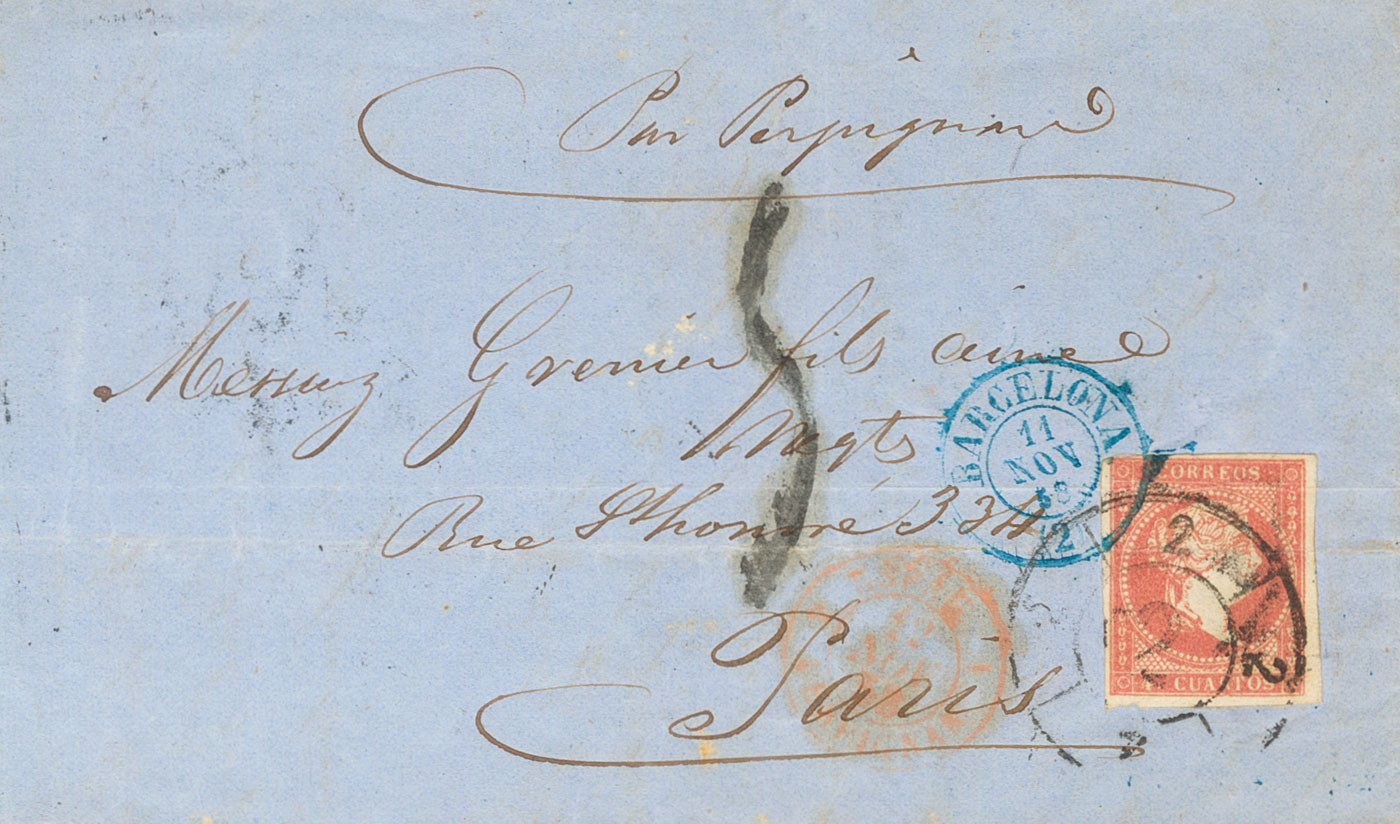 Par Perpignan
Messieurs Grenier fils ainé
Negts
Rue St honoré 334
Paris
BARCELONA
11
NOV
58
2
CORREOS
2
2
4 CUARTOS